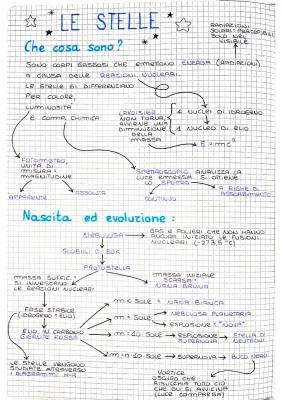 LE STELLE
RADIAZIONI
SOLARI PERCEPIBILI
SOLO NEL
VISIBILE
Che cosa sono?
SONO CORPI GASSOSI CHE EMETTONO ENERGIA (RADIAZIONI)
A CAUSA DELLE REAZIONI NUCLEARI.
LE STELLE SI DIFFERENZIANO
PER COLORE,
LUMINOSITÀ
E COMP. CHIMICA
LAVOISIER
NON TORNA,
AVVIENE UNA
DIMINUZIONE
DELLA
MASSA
4 NUCLEI DI IDROGENO
1 NUCLEO DI ELIO
E = mc²
FOTOMETRO,
UNITÀ DI
MISURA:
MAGNITUDINE
APPARENTE
ASSOLUTA
SPETTROSCOPIO ANALIZZA LA
LUCE EMESSA. SI OTTIENE
LO SPETTRO
CONTINUO
A RIGHE DI
ASSORBIMENTO
Nascita ed evoluzione:
NEBULOSA
GAS E POLVERI CHE NON HANNO
ANCORA INIZIATO LE FUSIONI
NUCLEARI (-273,5°C)
GLOBULI DI BOK
PROTOSTELLA
MASSA SUFFIC.
SI INNESCANO
LE REAZIONI NUCLEARI
MASSA INIZIALE
SCARSA:
NANA BRUNA
FASE STABILE
(IDROGENO - ELIO)
ELIO IN CARBONIO
GIGANTE ROSSA
m < SOLE
NANA BIANCA
m = SOLE
NEBULOSA PLANETARIA
ESPLOSIONE: "NOVA"
m = 10 SOLE
ESPLOSIONE
SUPERNOVA
STELLA DI
NEUTRONI
SOLE
SUPERNOVA
BUCO NERO
LE STELLE VENGONO
STUDIATE ATTRAVERSO
I DIAGRAMMI H-R
VORTICE
OSCURO CHE
RISUCCHIA TUTTO CIÒ
CHE GLI SI AVVICINA
(LUCE COMPRESA)